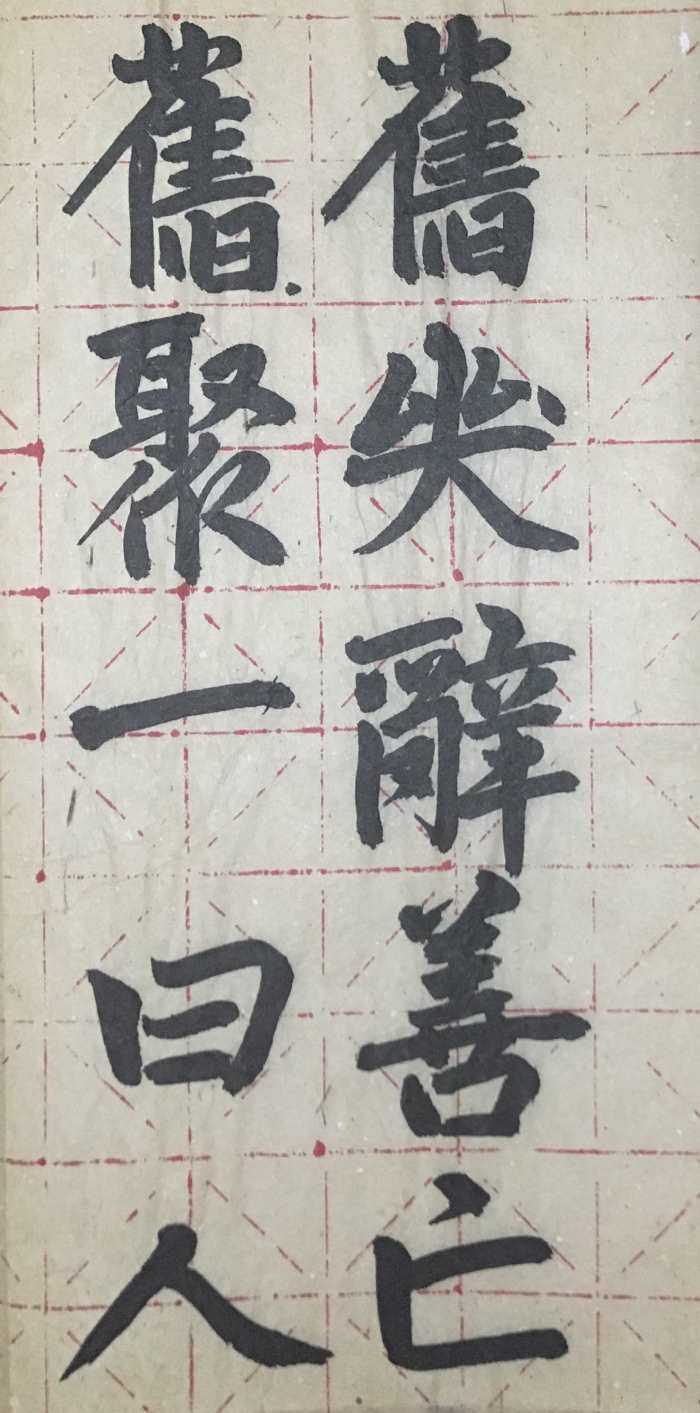 舊辭善亡
舊聚一曰人